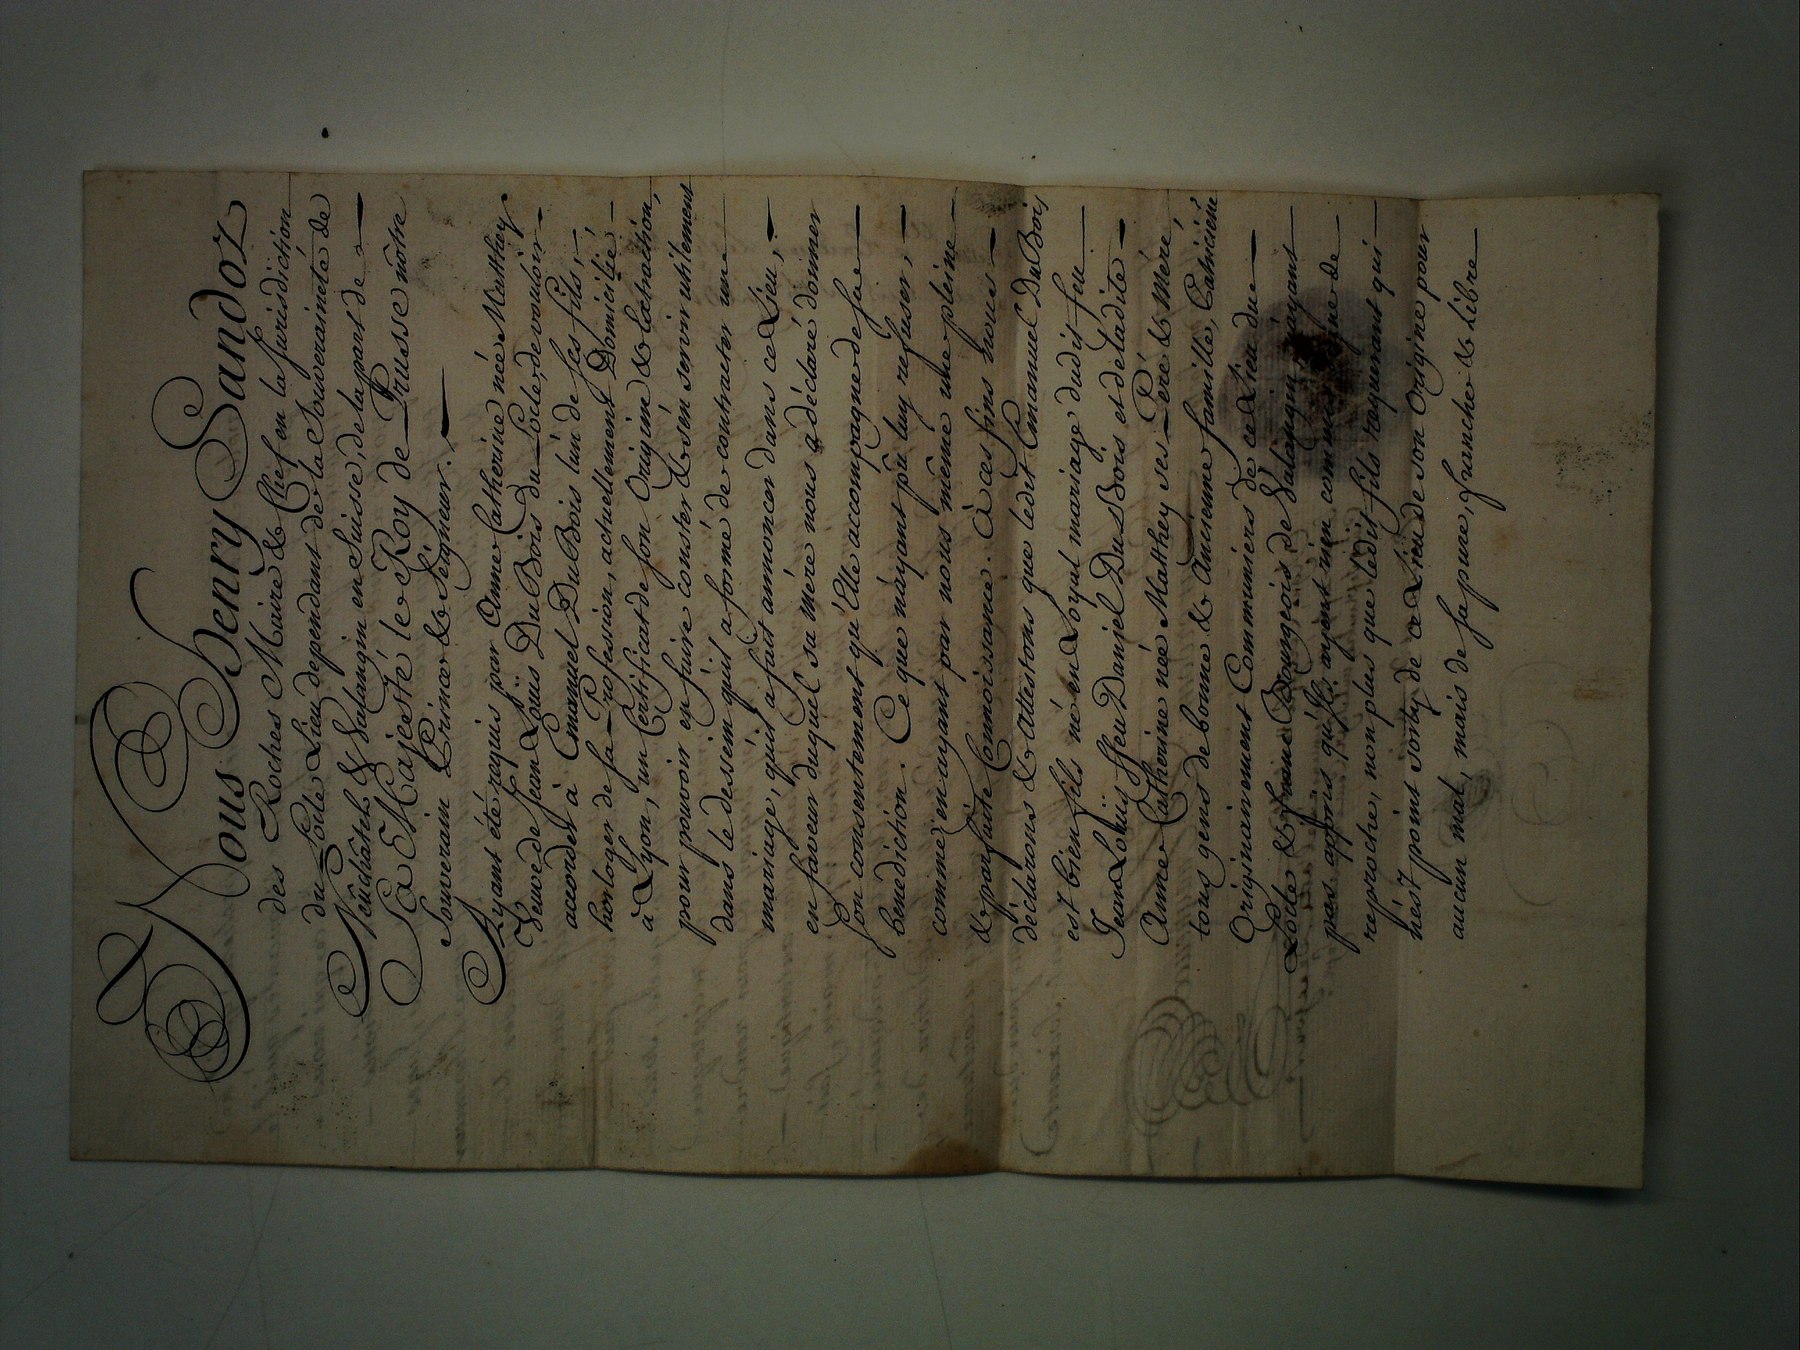 Nous Henry Sandoz
des Roches Maire & Chef en la Jurisdiction
du Locle Lieu dependant de la Souveraineté de
Neûchâtel & Valangin en Suisse, de la part de
Sa Majesté le Roy de Prusse nôtre
Souverain Prince & Seigneur.
Ayant été requis par Anne Catherine née Matthey
Veuve de Jean Loüis DuBois du Locle, de vouloir
accorder à Emanuel DuBois lun de ses fils,
horloger de sa Profession, actuellement Domicilié
à Lyon, un Certificat de son Origine & Extraction,
pour pouvoir en faire conster & sen servir utilement
dans le dessein quil a formé de contracter un
mariage, quil a fait annoncer dans ce Lieu,
en faveur duquel sa mére nous a déclaré donner
son consentement qu'Elle accompagne de sa
benediction. Ce que n'ayant pû luy refuser,
comme en ayant par nous même une pleine
& parfaite Connoissance. à ces fins nous
déclarons & attestons que ledit Emanuel DuBois
est bien fils né en Loyal mariage dudit feu
Jean Loüis ffeu Daniel DuBois et de ladite
Anne Catherine née Matthey ses Pere & Mere,
tous gens de bonne & Ancienne famille,
Originairement Communiers de ce Lieu du
Locle & francs Bourgeois de Valangin, n'ayant
pas appris qu'Ils ayent rien commis digne de
reproche, non plus que ledit fils requerant qui
nést point sorty de ce Lieu de son Origine pour
aucun mal, mais de sa pure, franche & libre